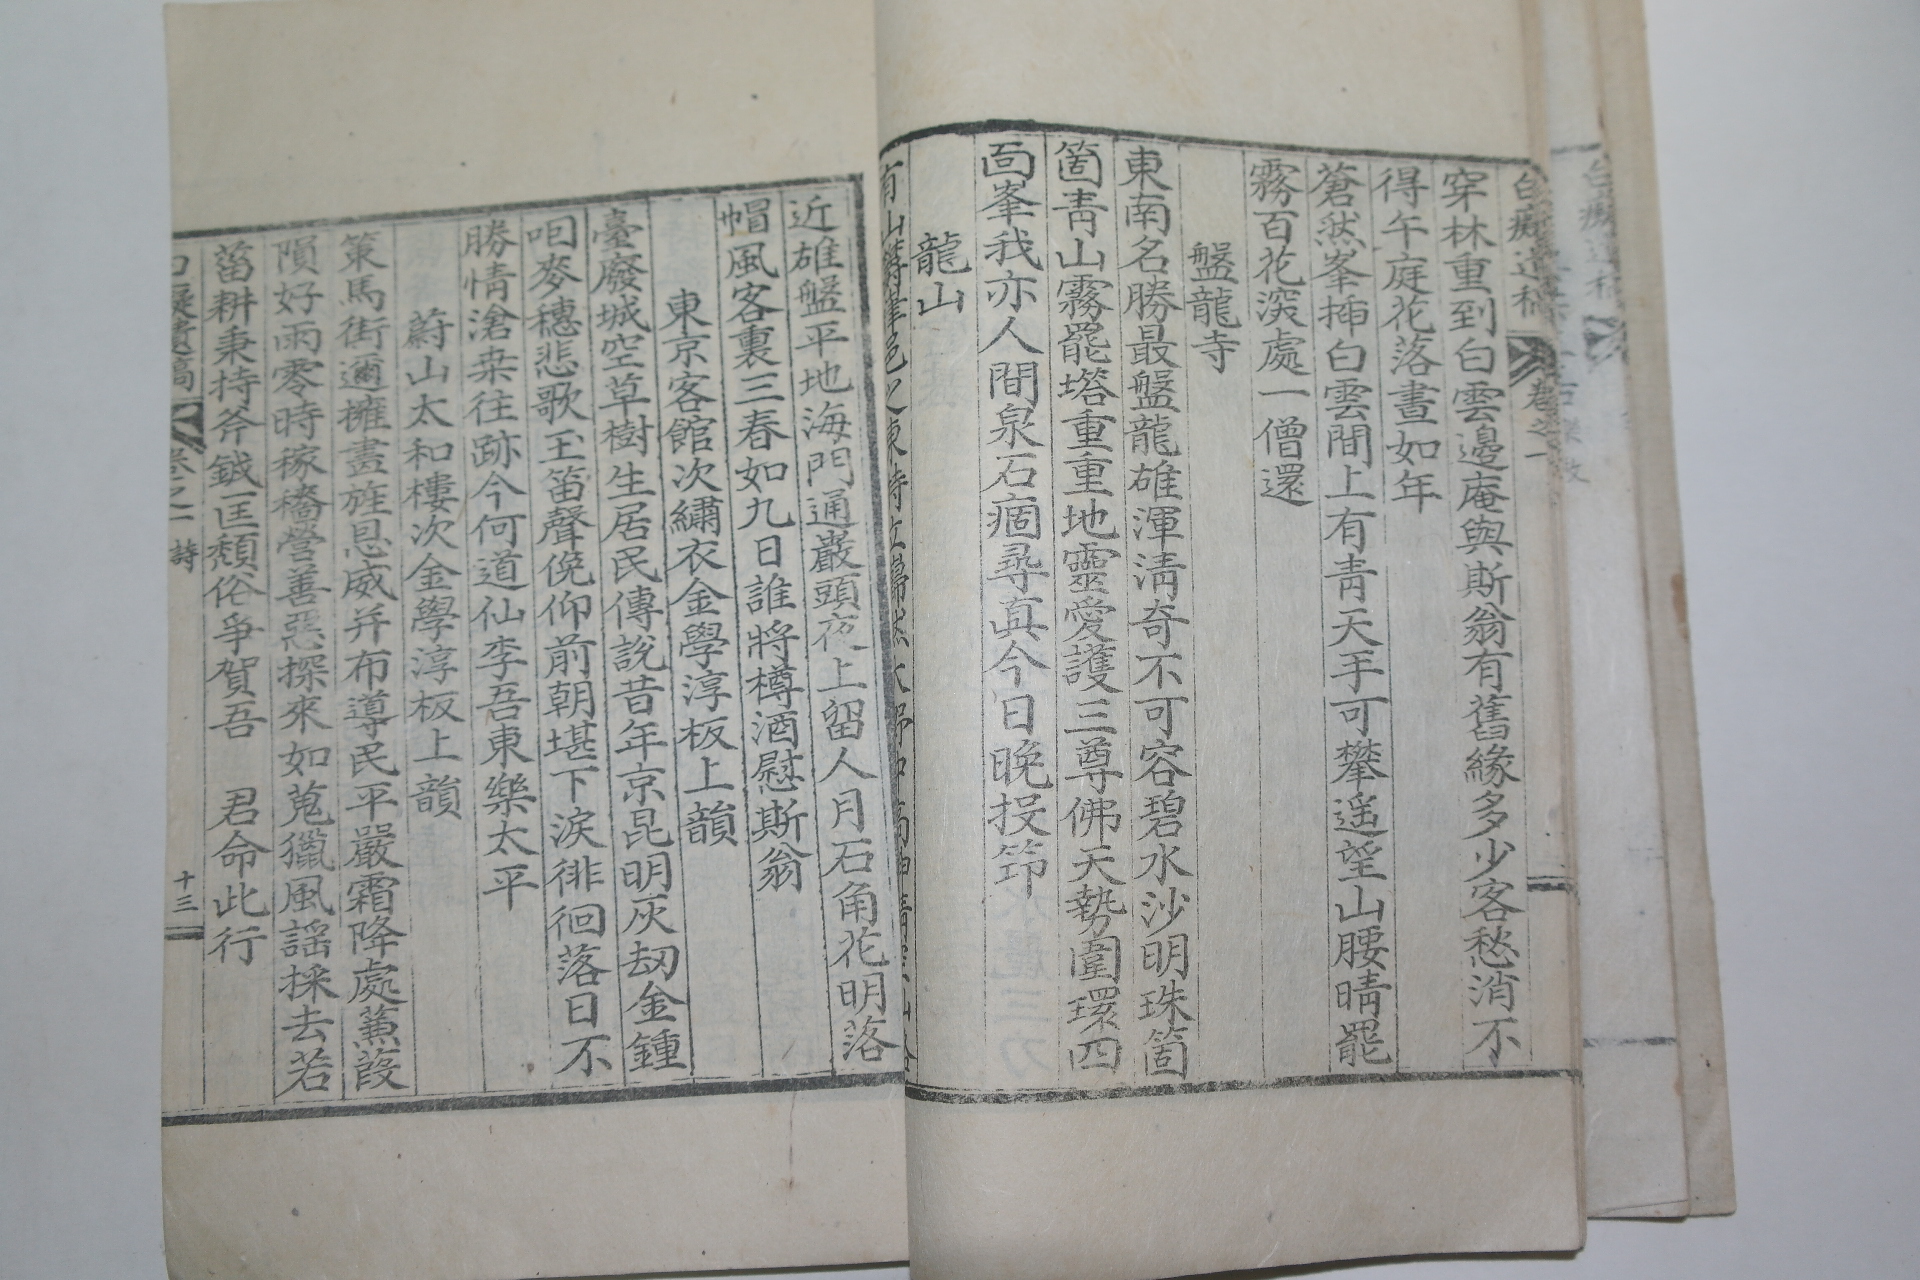 穿林重到白雲邊庵與斯翁有舊緣多少客愁消不
得午庭花落晝如年
蒼然峯揷白雲間上有靑天手可攀遥望山腰晴罷
霧百花深處一僧還
盤龍寺
東南名勝最盤龍雄渾淸奇不可容碧水沙明珠箇
箇靑山霧罷塔重重地靈愛護三尊佛天勢圍環四
面峯我亦人間泉石痼尋眞今日晩投筇
龍山
近雄盤平地海門通巖頭夜上留人月石角花明落
帽風客裏三春如九日誰將樽酒慰斯翁
東京客館次繡衣金學淳板上韻
臺廢城空草樹生居民傳說昔年京昆明灰刼金鍾
咽麥穗悲歌玉笛聲俛仰前朝堪下淚徘徊落日不
勝情滄桒往跡今何道仙李吾東樂太平
蔚山太和樓次金學淳板上韻
策馬街邇擁盡旌恩威并布導民平嚴霜降處蒹葭
隕好雨零時稼穡營善惡探來如蒐獵風謠採去若
菑耕秉持斧鉞匡頹俗爭賀吾 君命此行
卷之一 詩
十三